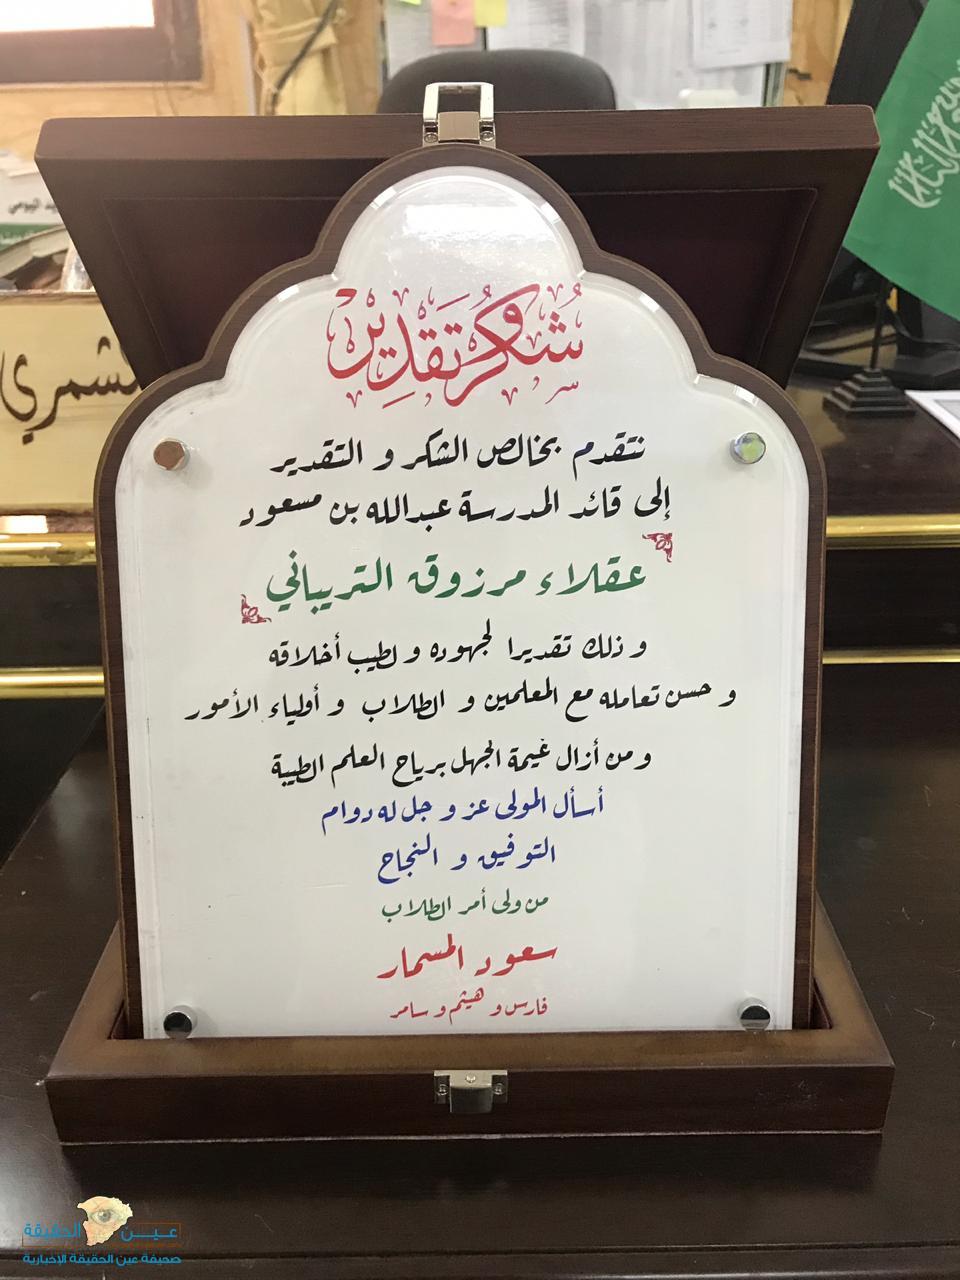 شكر وتقدير
نتقدم بخالص الشكر و التقدير
إلى قائد المدرسة عبدالله بن مسعود
عقلاء مرزوق التريباني
و ذلك تقديرا لجهوده و لطيب أخلاقه
و حسن تعامله مع المعلمين و الطلاب و أولياء الأمور
ومن أزال غيمة الجهل برياح العلم الطيبة
أسأل المولى عز و جل له دوام
التوفيق و النجاح
من ولى أمر الطلاب
سعود المسمار
فارس و هيثم و سامر
لشمري
اليومي
عين الحقيقة
صحيفة عين الحقيقة الإخبارية